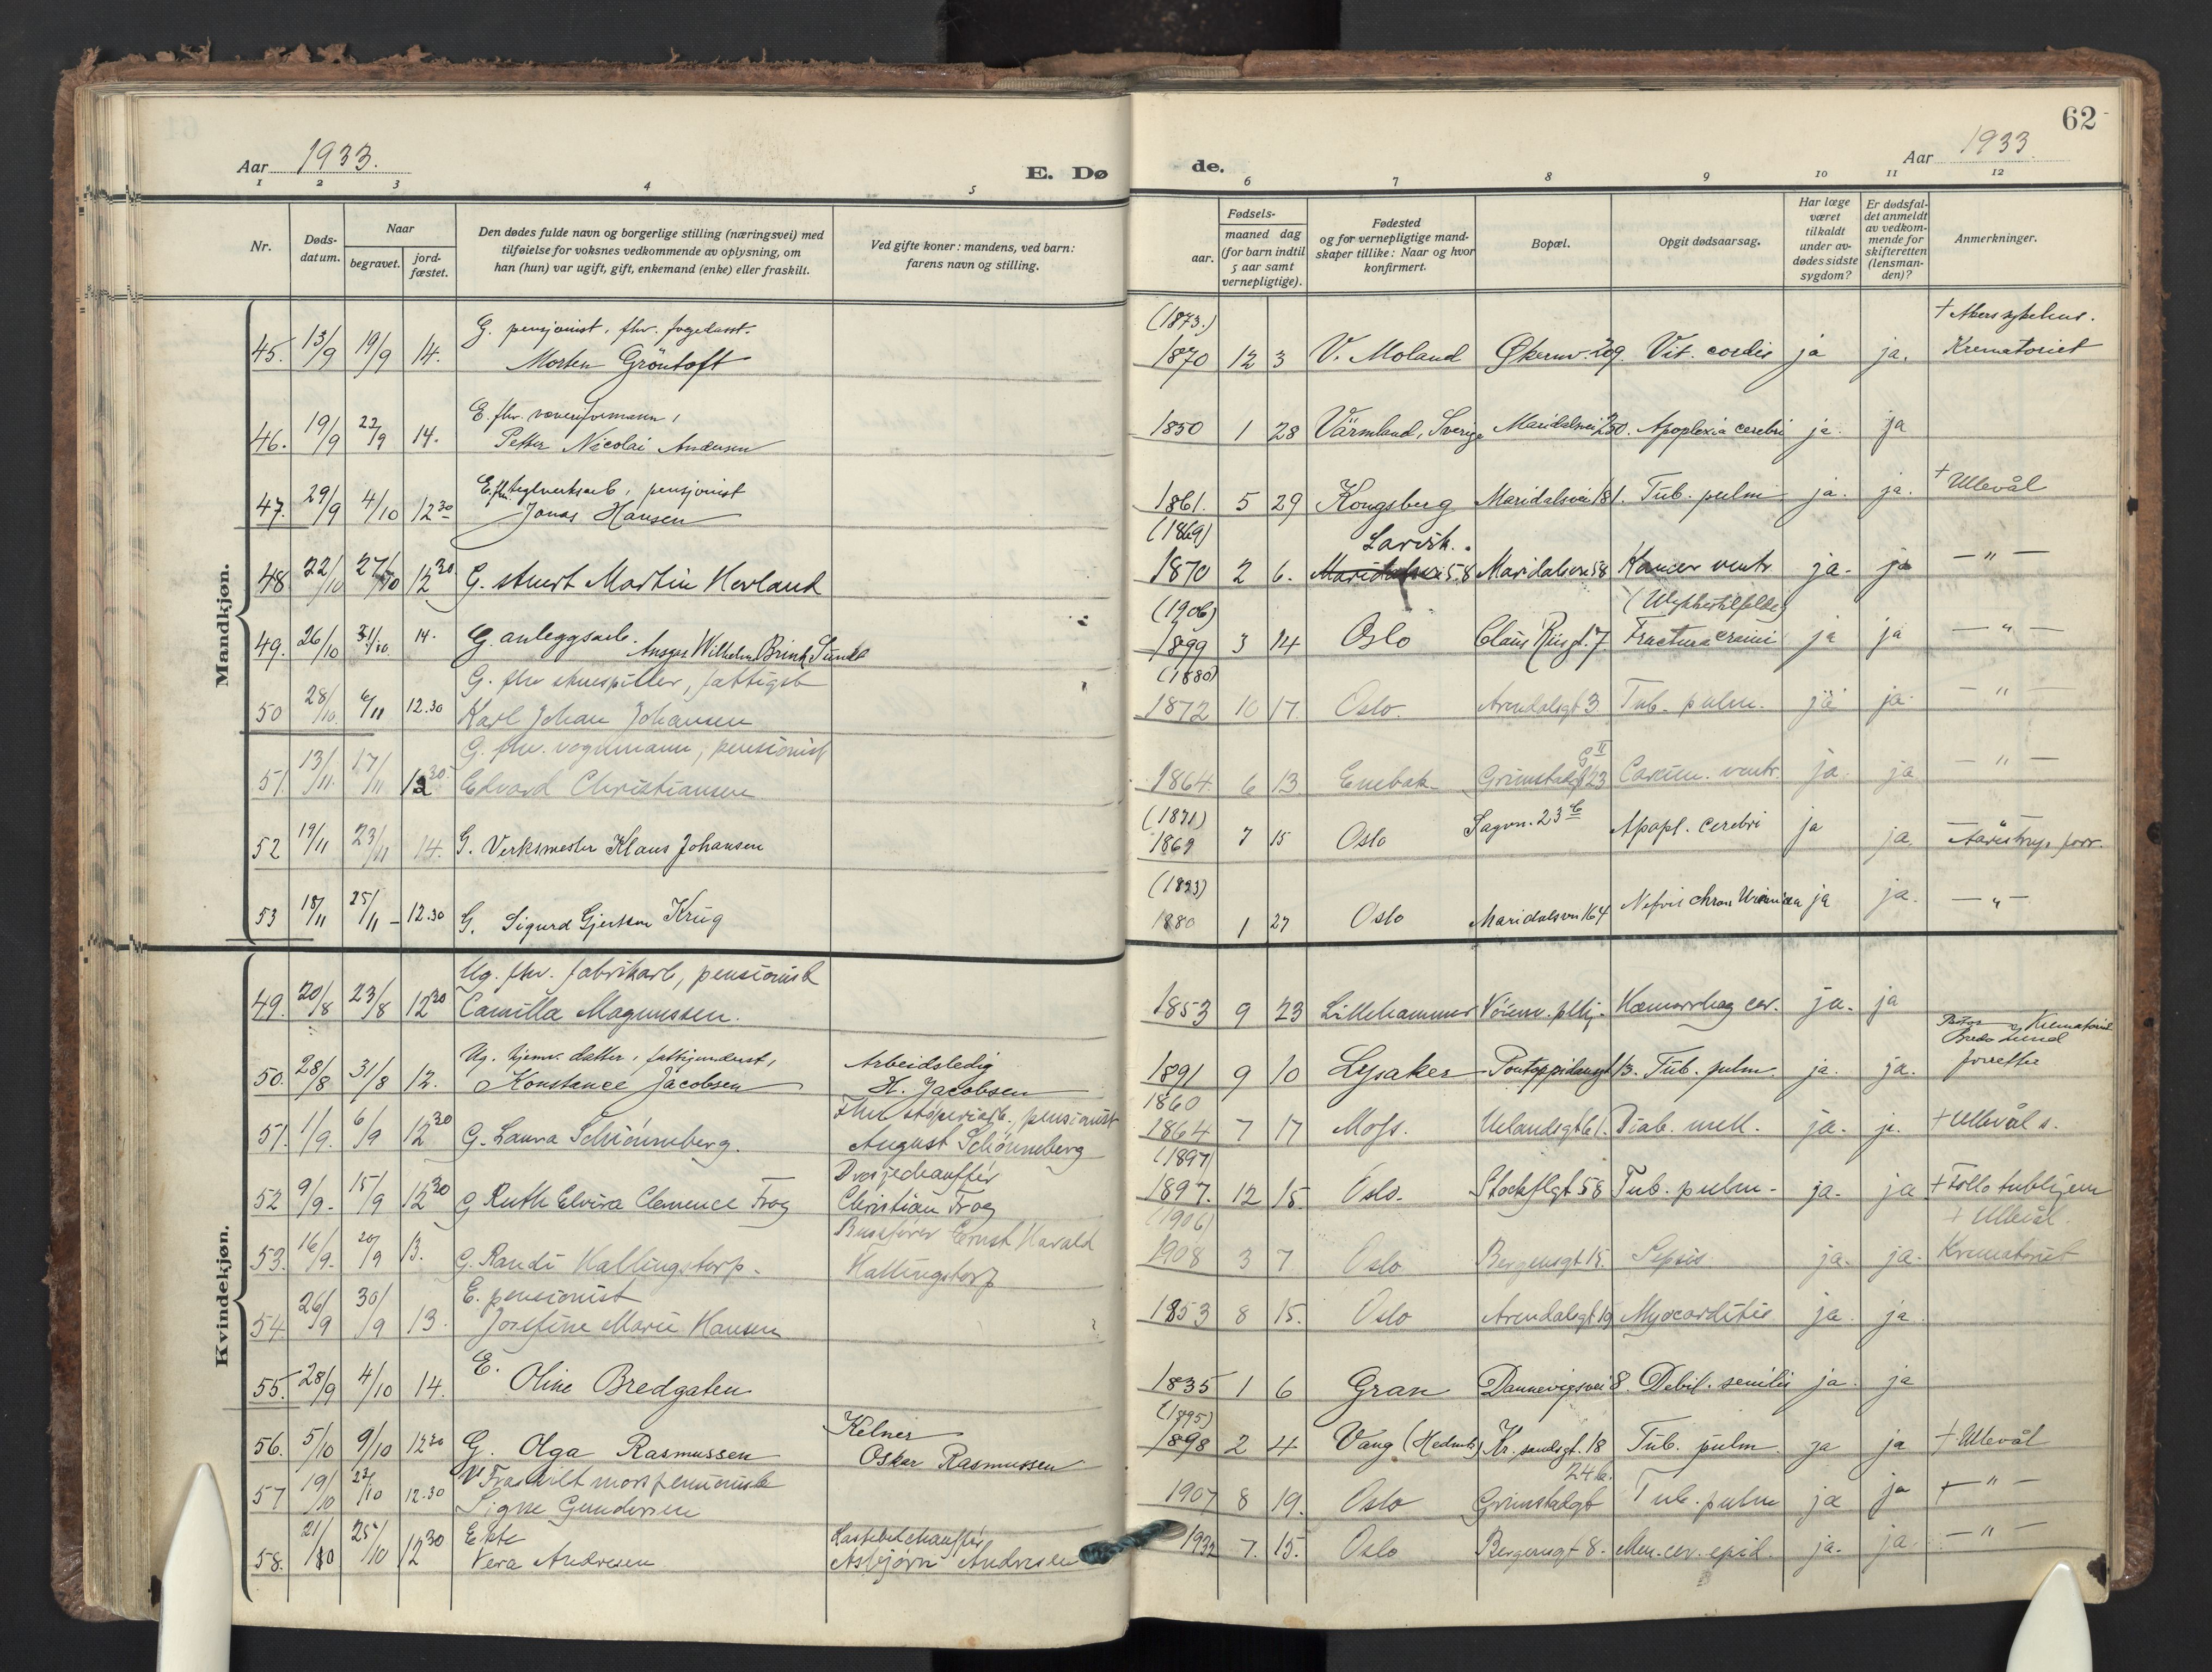 62
Aar 1933.
E. Dø
de.
Aar 1933
1 2 3 4 5 6 7 8 9 10 11 12
Nr.
Døds-
datum.
Naar
begravet.
jord-
fæstet.
Den dødes fulde navn og borgerlige stilling (næringsvei) med
tilføielse for voksnes vedkommende av oplysning, om
han (hun) var ugift, gift, enkemand (enke) eller fraskilt.
Ved gifte koner: mandens, ved barn:
farens navn og stilling.
Fødsels-
aar.
maaned dag
(for barn indtil
5 aar samt
vernepligtige).
Fødested
og for vernepligtige mand-
skaper tillike: Naar og hvor
konfirmert.
Bopæl.
Opgit dødsaarsag.
Har læge
været
tilkaldt
under av-
dødes sidste
sygdom?
Er dødsfal-
det anmeldt
av vedkom-
mende for
skifteretten
(lensman-
den)?
Anmerkninger.
Mandkjøn.
G. pensjonist, fhv. fogedasst. (1873.) + Akers sykehus.
45. 13/9 19/9 14. Morten Gröntoft 1870 12 3 V. Moland Økernv. 209. Vit. cordis ja ja. Krematoriet
E. fhv. væveriformann,
46. 19/9 22/9 14. Petter Nicolai Andersen 1850 1 28 Värmland, Sverige Maridalsvei 250. Apoplexia cerebri ja. ja
E. fhv. teglverksarb, pensjonist
47. 29/9 4/10 12 30 Jonas Hansen 1861. 5 29 Kongsberg Maridalsvei 181. Tub. pulm ja. ja. + Ullevål
(1869) Larvik.
48 22/10 27/10 12 30 G. stuert Martin Hovland 1870 2 6. Maridalsvei 58 Maridalsvei 58 Kancer ventr ja. ja — " —
(1906) (Ulykkestilfelde)
49. 26/10 31/10 14. G. anleggsarb. Ansgar Wilhelm Brink Sundt 1899 3 14 Oslo Claus Riisgt. 7. Fractura cranii ja ja — " —
G. fhv skuespiller, fattigsb (1880)
50 28/10. 6/11 12.30 Karl Johan Johansen 1872 10 17. Oslo. Arendalsgt 3 Tub. pulm. ja ja. — " —
G. fhv. vognmann, pensionist
51. 13/11. 17/11 12 30. Edvard Christiansen 1864. 6 13 Enebak Grimstadgt 23 II Carcin. ventr. ja. ja — " —
(1871)
52 19/11 23/11 14. G. Verksmester Klaus Johansen 1869 7 15 Oslo Sagvn. 23 Apopl. cerebri ja ja. — " —
(1893)
53 18/11 25/11 — 12.30 G. Sigurd Gjertsen Krug 1880 1 27 Oslo Maridalsvn 164 ja ja. — " —
Kvindekjøn.
Ug. fhv. fabrikarb, pensionist
49. 20/8 23/8 12 30 Camilla Magnussen. 1853 9 23 Lillehammer Vöienv. plhj. Hæmorrhag cer. ja. ja
Ug. hjemv. datter, fattigunderst, Arbeidsledig Krematoriet
50. 28/8 31/8 12. Konstance Jacobsen H. Jacobsen 1891 9 10 Lysaker Pontoppidansgt 13. Tub. pulm. ja. ja. forrettet
Fhv støperiarb., pensionist 1860
51. 1/9. 6/9 12 30 G. Laura Schiönneberg. August Schönneberg 1864 7 17 Moss. Uelandsgt 61. Diab. mell. ja. ja. + Ullevål s.
Drosjechauffør (1897)
52 9/9. 15/9 12 30 g Ruth Elvira Clemence Frog Christian Frog 1897. 12 15 Oslo. Stockflgt 58 Tub. pulm. ja. ja + Follo tubhjem
Bussfører Ernst Harald (1906) + Ullevål.
53. 16/9. 20/9 13. G. Randi Hallingstorp. Hallingstorp 1908 3 7 Oslo Bergensgt 15. Sepsis ja. ja. Krematoriet
E. pensionist
54 26/9 30/9 13. Josefine Marie Hansen 1853 8 15. Oslo Arendalsgt 19 Myocarditis ja. ja.
55. 28/9 4/10 14. E. Oline Bredgaten 1835 1 6 Gran Dannevigsvei 8. Debil. senilis ja. ja
Kelner (1895)
56. 5/10 9/10 12 30 G. Olga Rasmussen Oskar Rasmussen 1898 2 4 Vang (Hedmk) Kr. sandsgt. 18 Tub. pulm. ja ja + Ullevål
Fraskilt 24 b.
57 19/10 23/10 12.30 Signe Gundersen 1907 8 19. Oslo Grimstadgt Tub. pulm ja ja + — " —
Ekte Lastebilchauffør
58. 21/10 25/10 12 30 Vera Andresen Asbjørn Andresen 1932 7. 15. Oslo Bergensgt 8. Men. cer. epid. ja. ja. — " —